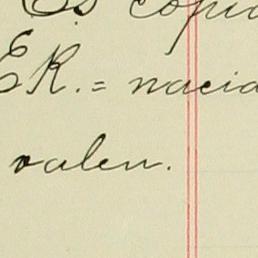 Es copia
ER. = nacid
valen.